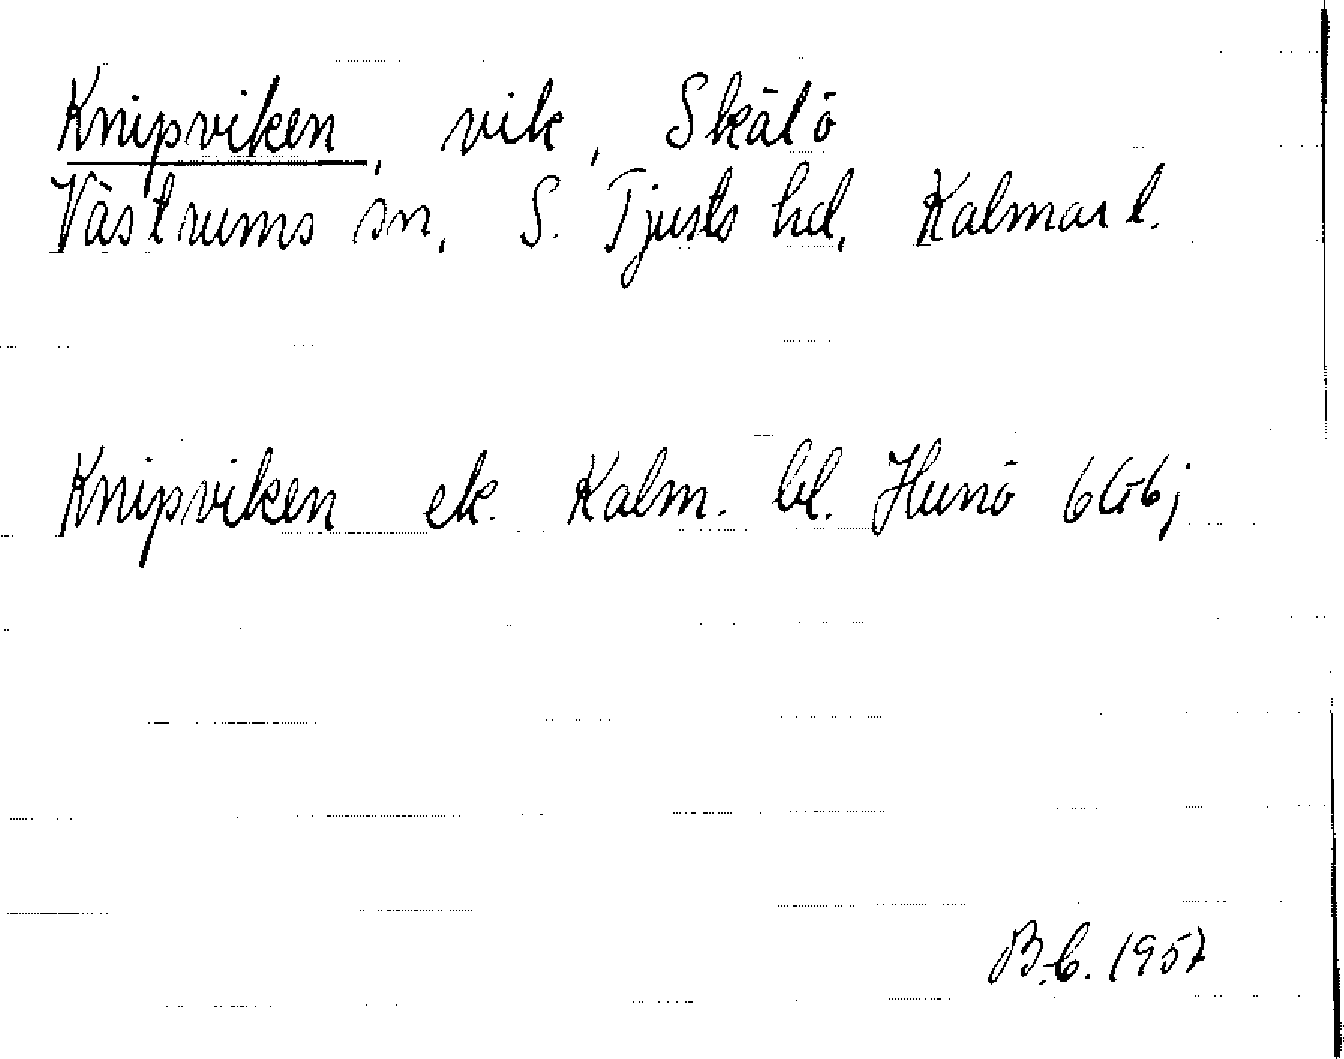 Knipviken, vik, Skälö
Västrums sn, S. Tjusts hd, Kalmar l.
Knipviken ek. Kalm. bl. Hunö 6G6j
B.C. 1957